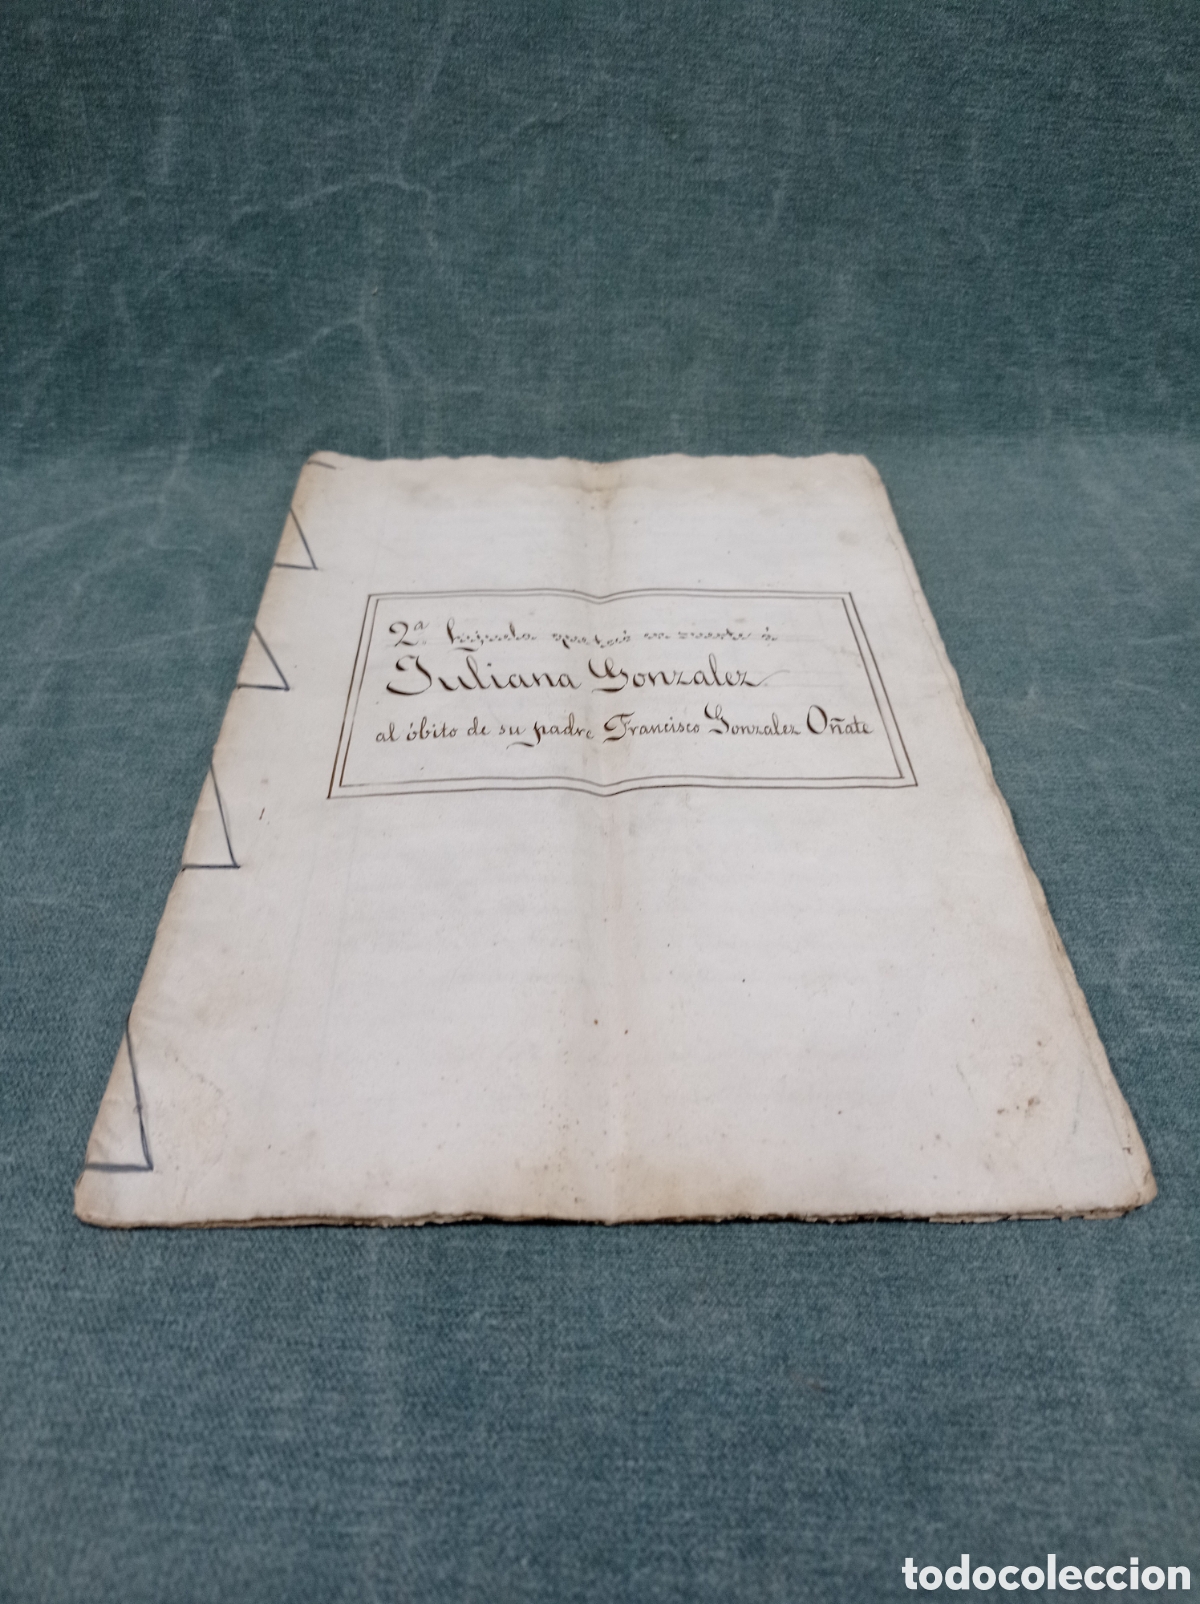 2ª hijuela que tocó en suerte á
Juliana Gonzalez
al óbito de su padre Francisco Gonzalez Oñate
todocoleccion